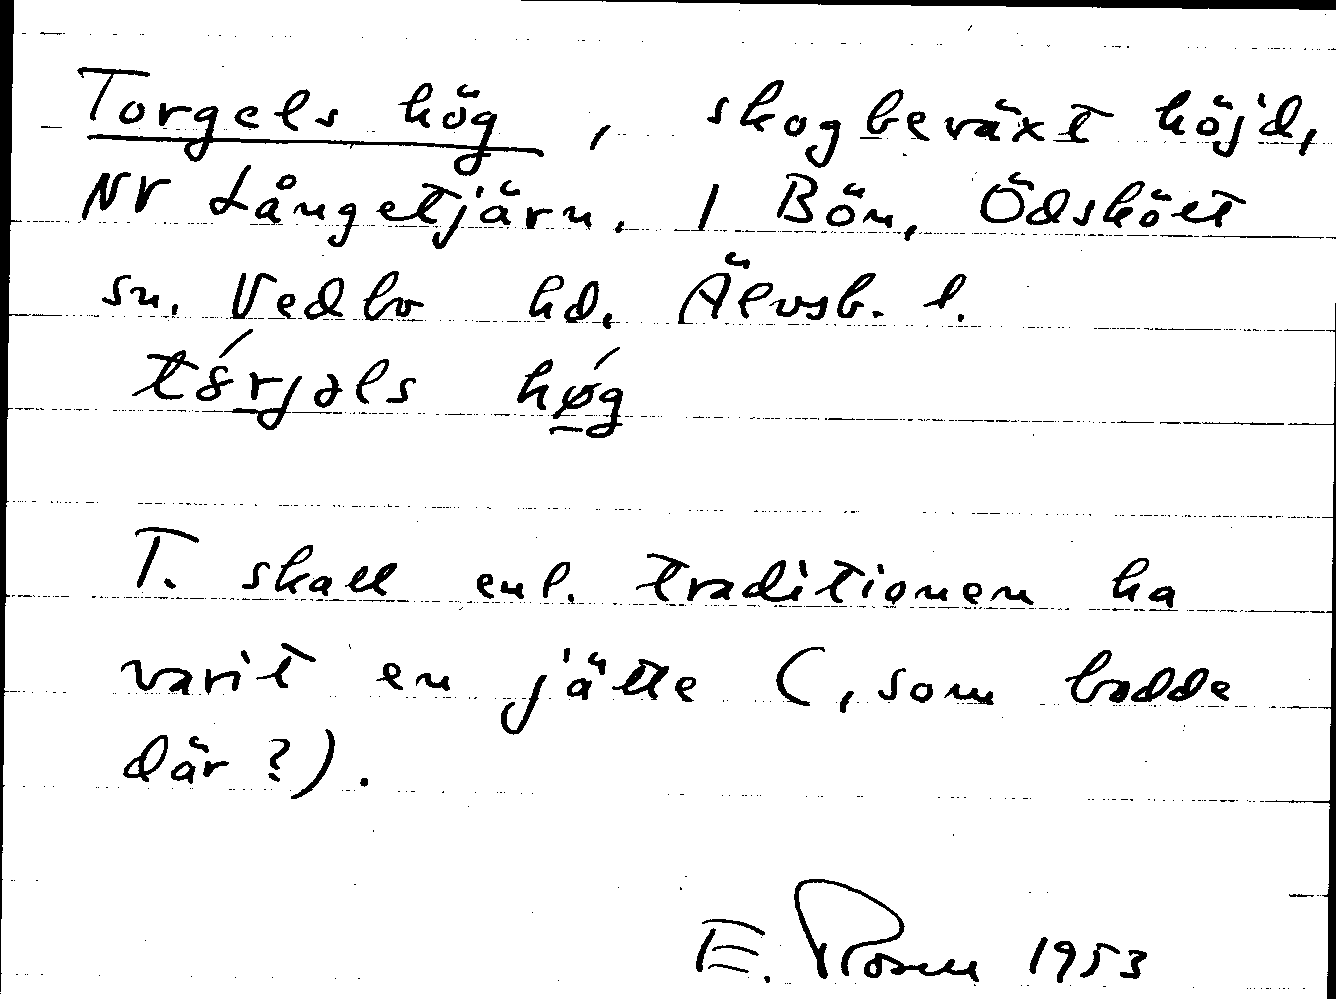 Torgels hög, skogbeväxt höjd,
NV Långetjärn. 1 Bön, Ödskölt
sn. Vedbo hd. Älvsb. l.
tórjəls høg
T. skall enl. traditionen ha
varit en jätte (, som bodde
där?).
E. Rosen 1953